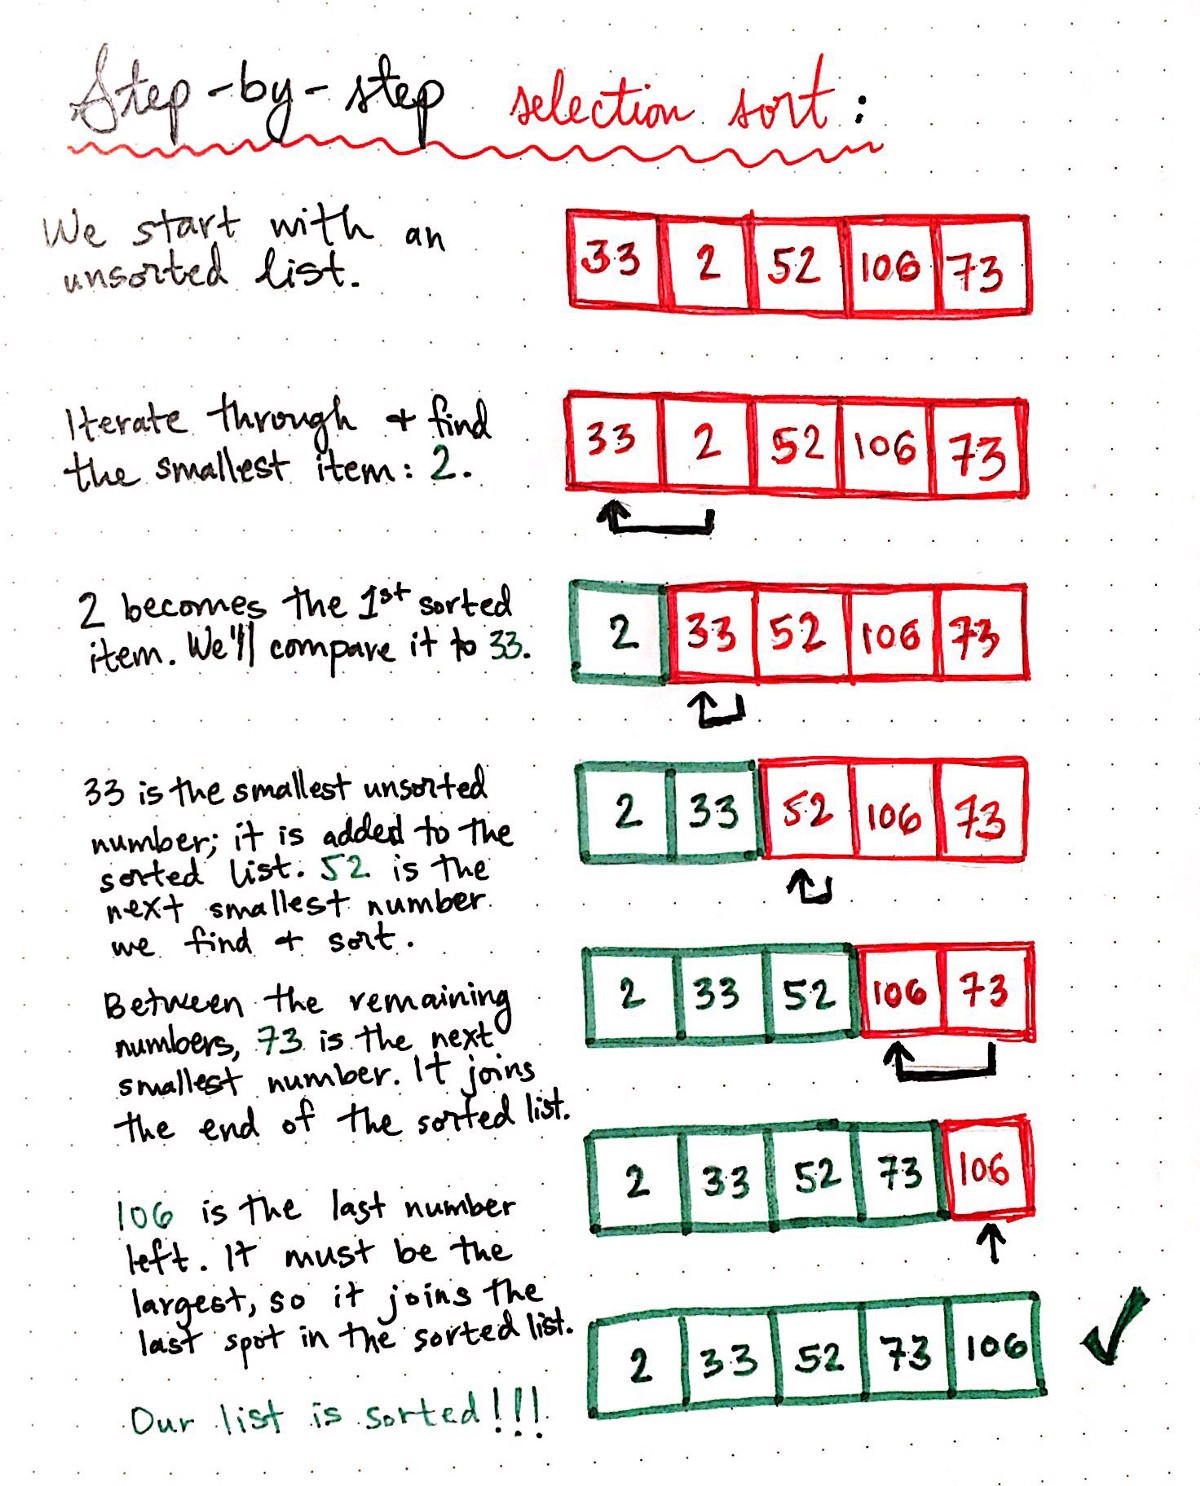 Step-by-step selection sort:
We start with an
unsorted list.
33 2 52 106 73
Iterate through + find
the smallest item: 2.
33 2 52 106 73
2 becomes the 1st sorted
item. We'll compare it to 33.
2 33 52 106 73
33 is the smallest unsorted
number; it is added to the
sorted list. 52 is the
next smallest number
we find + sort.
2 33 52 106 73
Between the remaining
numbers, 73 is the next
smallest number. It joins
the end of the sorted list.
2 33 52 106 73
106 is the last number
left. It must be the
largest, so it joins the
last spot in the sorted list.
2 33 52 73 106
Our list is sorted!!!
2 33 52 73 106